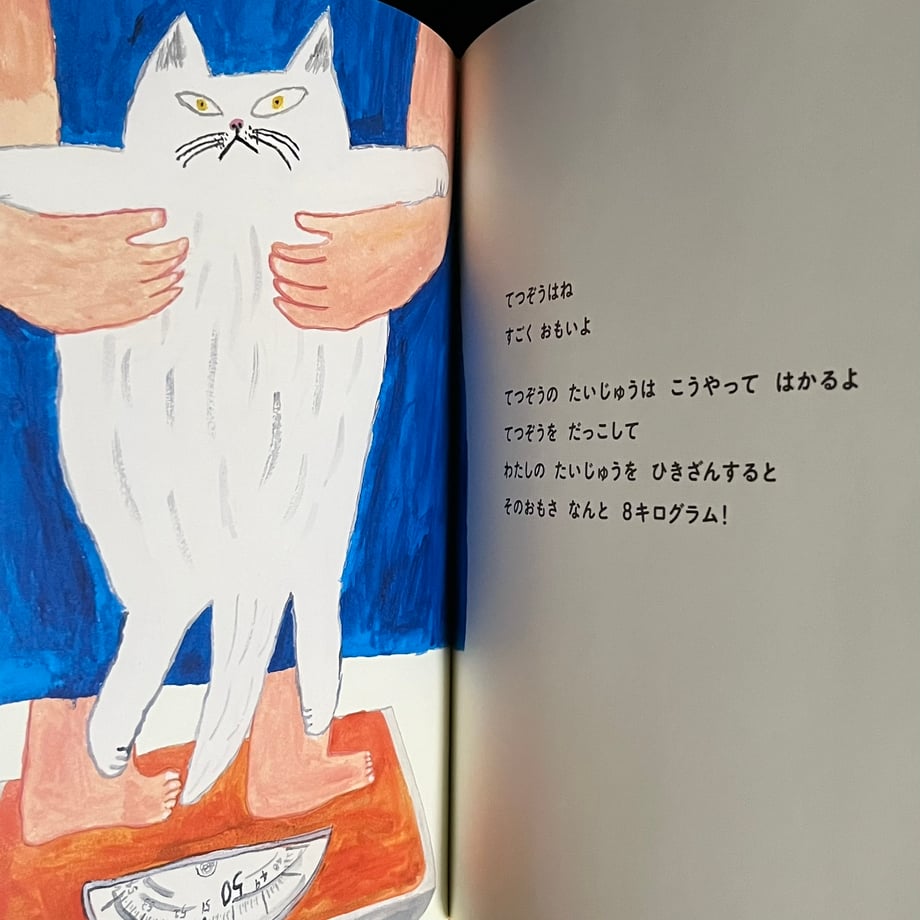 てつぞうはね
すごく おもいよ
てつぞうの たいじゅうは こうやって はかるよ
てつぞうを だっこして
わたしの たいじゅうを ひきざんすると
そのおもさ なんと 8キログラム!
50
49
51
52
53